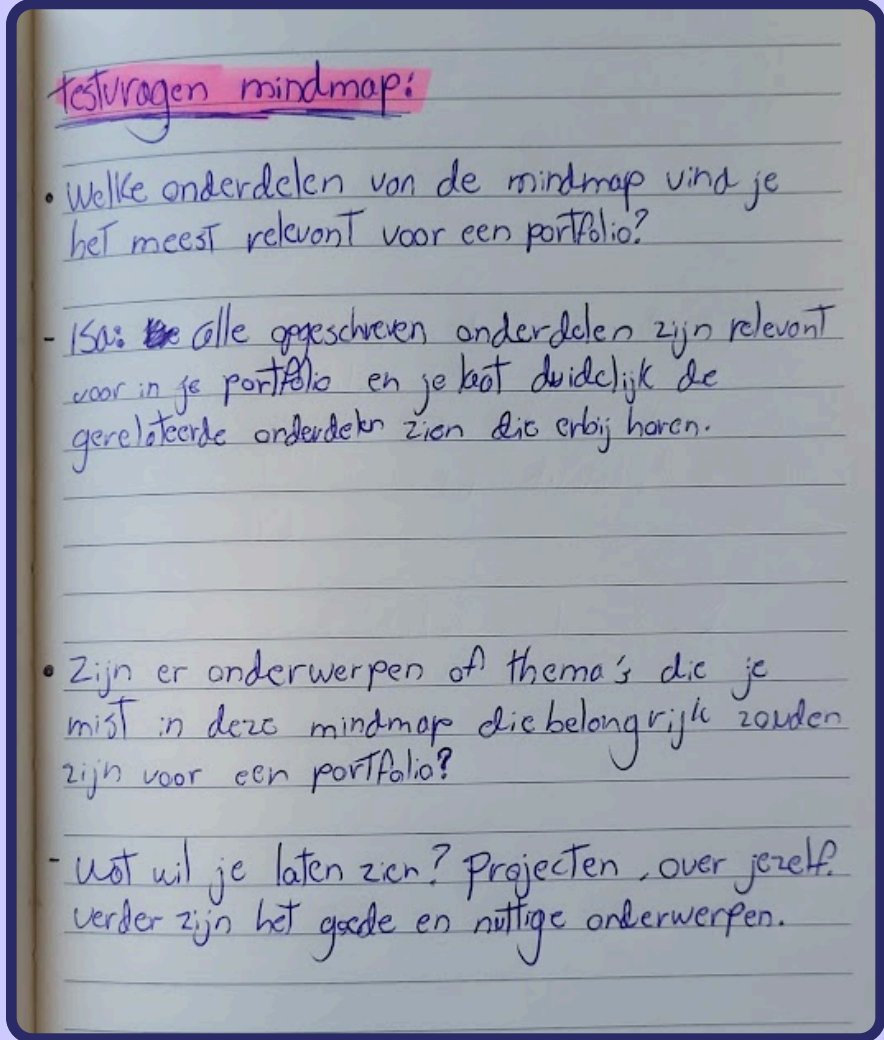 testvragen mindmap:
• Welke onderdelen van de mindmap vind je
het meest relevant voor een portfolio?
- Isa: alle opgeschreven onderdelen zijn relevant
voor in je portfolio en je laat duidelijk de
gerelateerde onderdelen zien die erbij horen.
• Zijn er onderwerpen of thema's die je
mist in deze mindmap die belangrijk zouden
zijn voor een portfolio?
- Wat wil je laten zien? Projecten, over jezelf.
verder zijn het goede en nuttige onderwerpen.